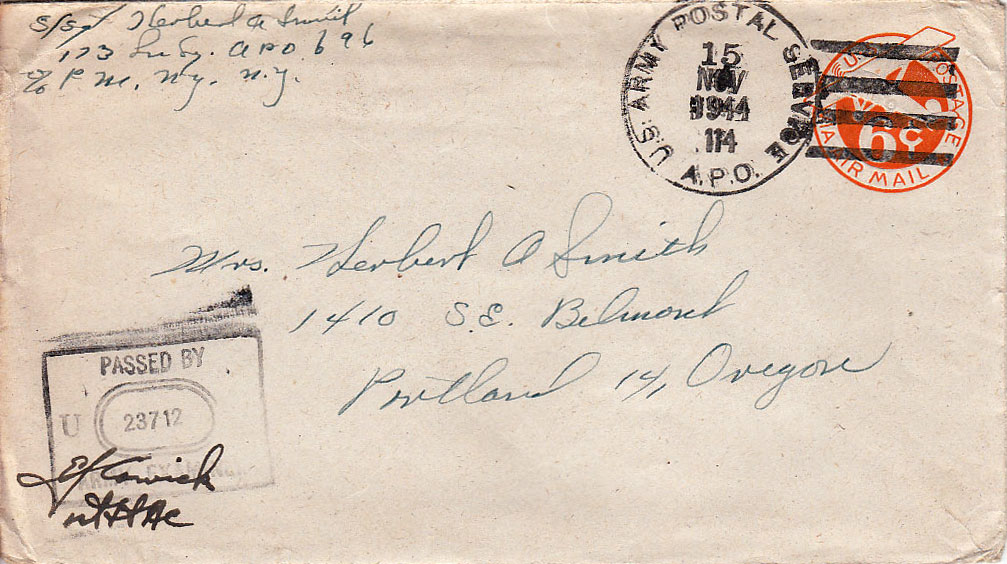 S/Sgt Herbert A Smith
173 APO 696
c/o P.M. Ny. N.Y.
U.S. ARMY POSTAL SERVICE
15
NOV
1944
114
A.P.O.
U.S. POSTAGE
6¢
VIA AIR MAIL
Mrs. Herbert A Smith
1410 S.E. Belmont
Portland 14, Oregon
PASSED BY
U
23712
ARMY EXAMINER